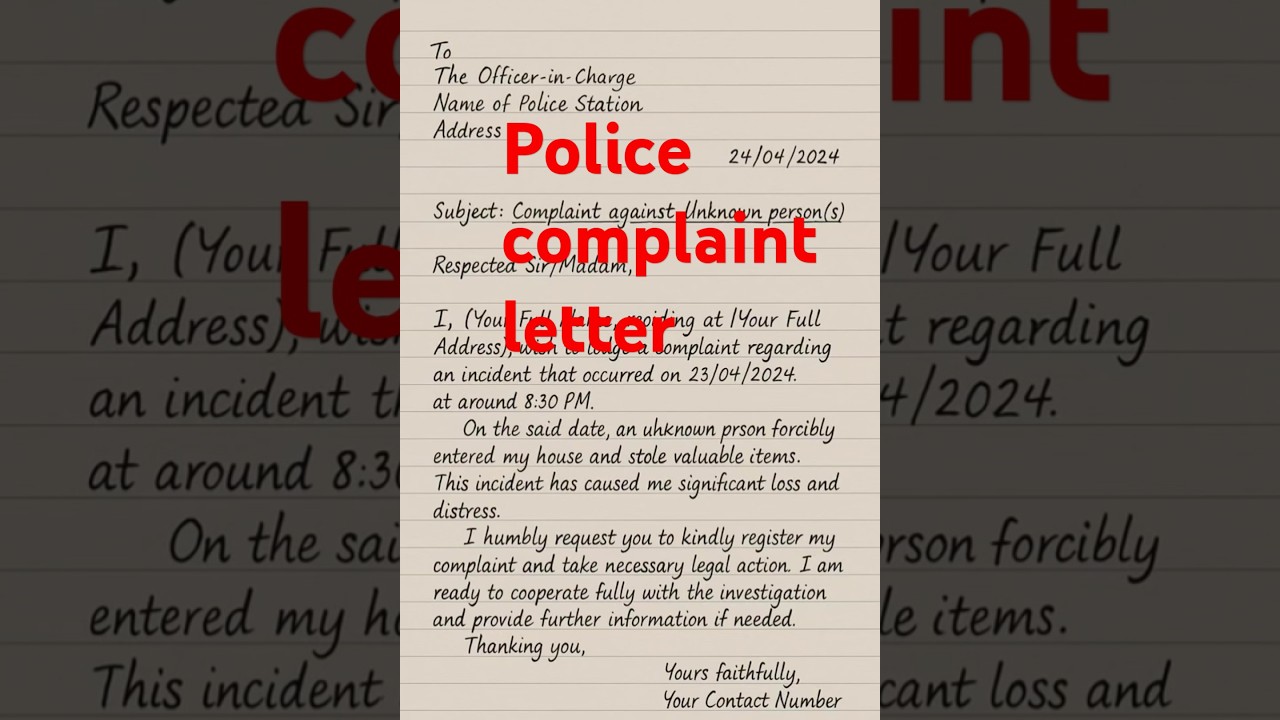 To
The Officer-in-Charge
Name of Police Station
Address
24/04/2024
Police
complaint
letter
Subject: Complaint against Unknown person(s)
Respected Sir/Madam,
I, (Your Full Name, residing at /Your Full
Address), wish to lodge a complaint regarding
an incident that occurred on 23/04/2024.
at around 8:30 PM.
On the said date, an uhknown prson forcibly
entered my house and stole valuable items.
This incident has caused me significant loss and
distress.
I humbly request you to kindly register my
complaint and take necessary legal action. I am
ready to cooperate fully with the investigation
and provide further information if needed.
Thanking you,
Yours faithfully,
Your Contact Number